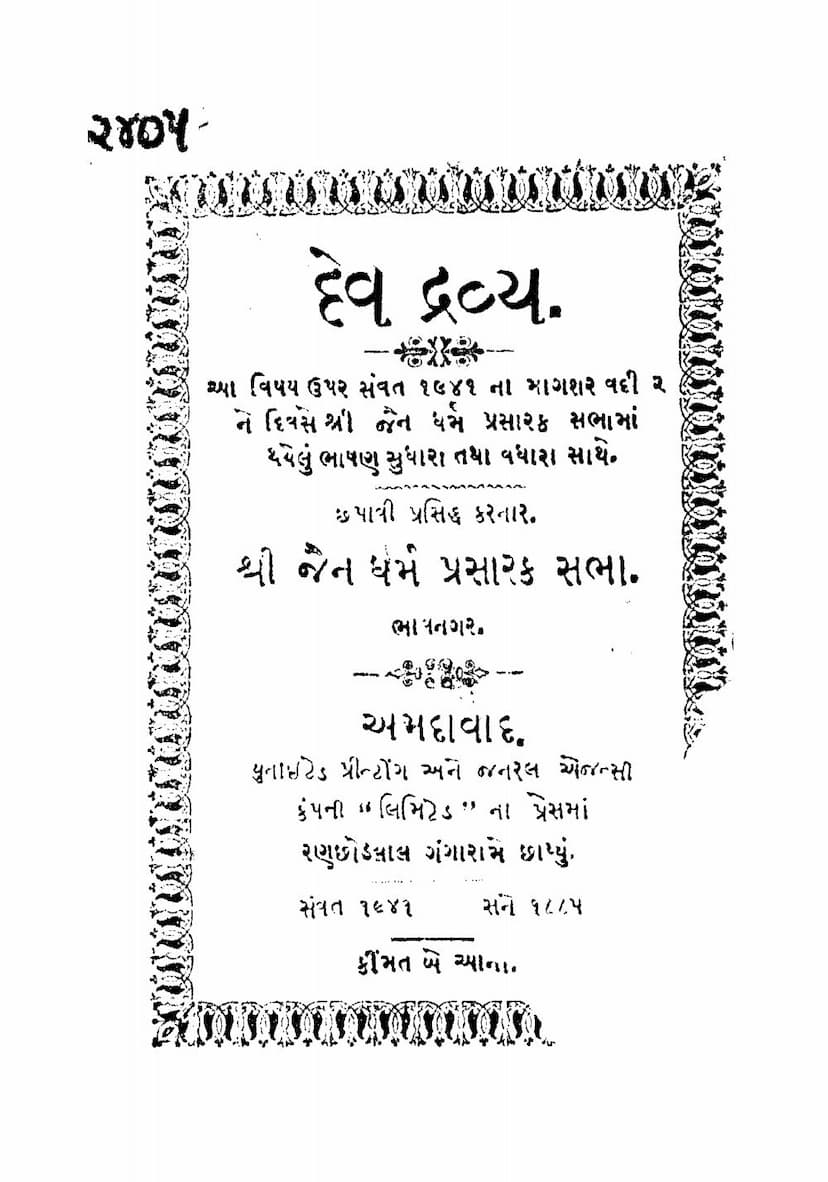 ૨૪૦૫
દેવ દ્રવ્ય.
આ વિષય ઉપર સંવત ૧૯૪૧ ના માગશર વદી ૨
ને દિવસે શ્રી જૈન ધર્મ પ્રસારક સભામાં
થયેલું ભાષણ સુધારા તથા વધારા સાથે.
છપાવી પ્રસિદ્ધ કરનાર.
શ્રી જૈન ધર્મ પ્રસારક સભા.
ભાવનગર.
અમદાવાદ.
યુનાઈટેડ પ્રીન્ટીંગ અને જનરલ એજન્સી
કંપની “લિમિટેડ” ના પ્રેસમાં
રણછોડલાલ ગંગારામે છાપ્યું.
સંવત ૧૯૪૧ સને ૧૮૮૫
કીંમત બે આના.